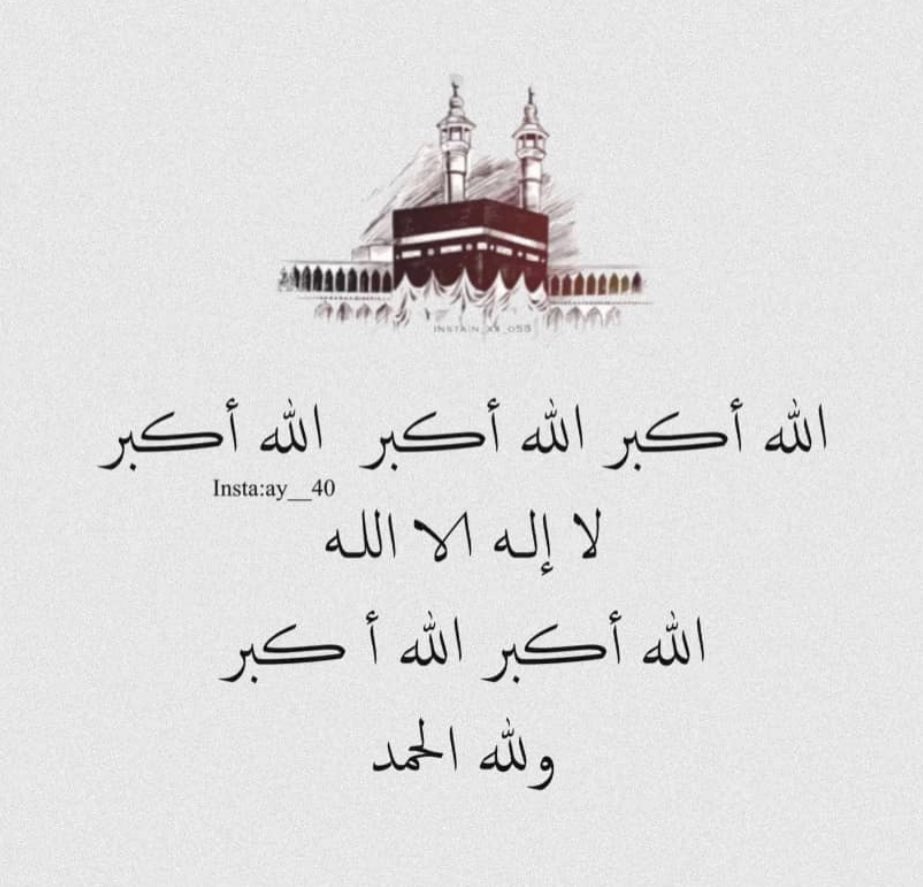 الله أكبر الله أكبر الله أكبر
Insta:ay__40
لا إله الا الله
الله أكبر الله أ كبر
ولله الحمد